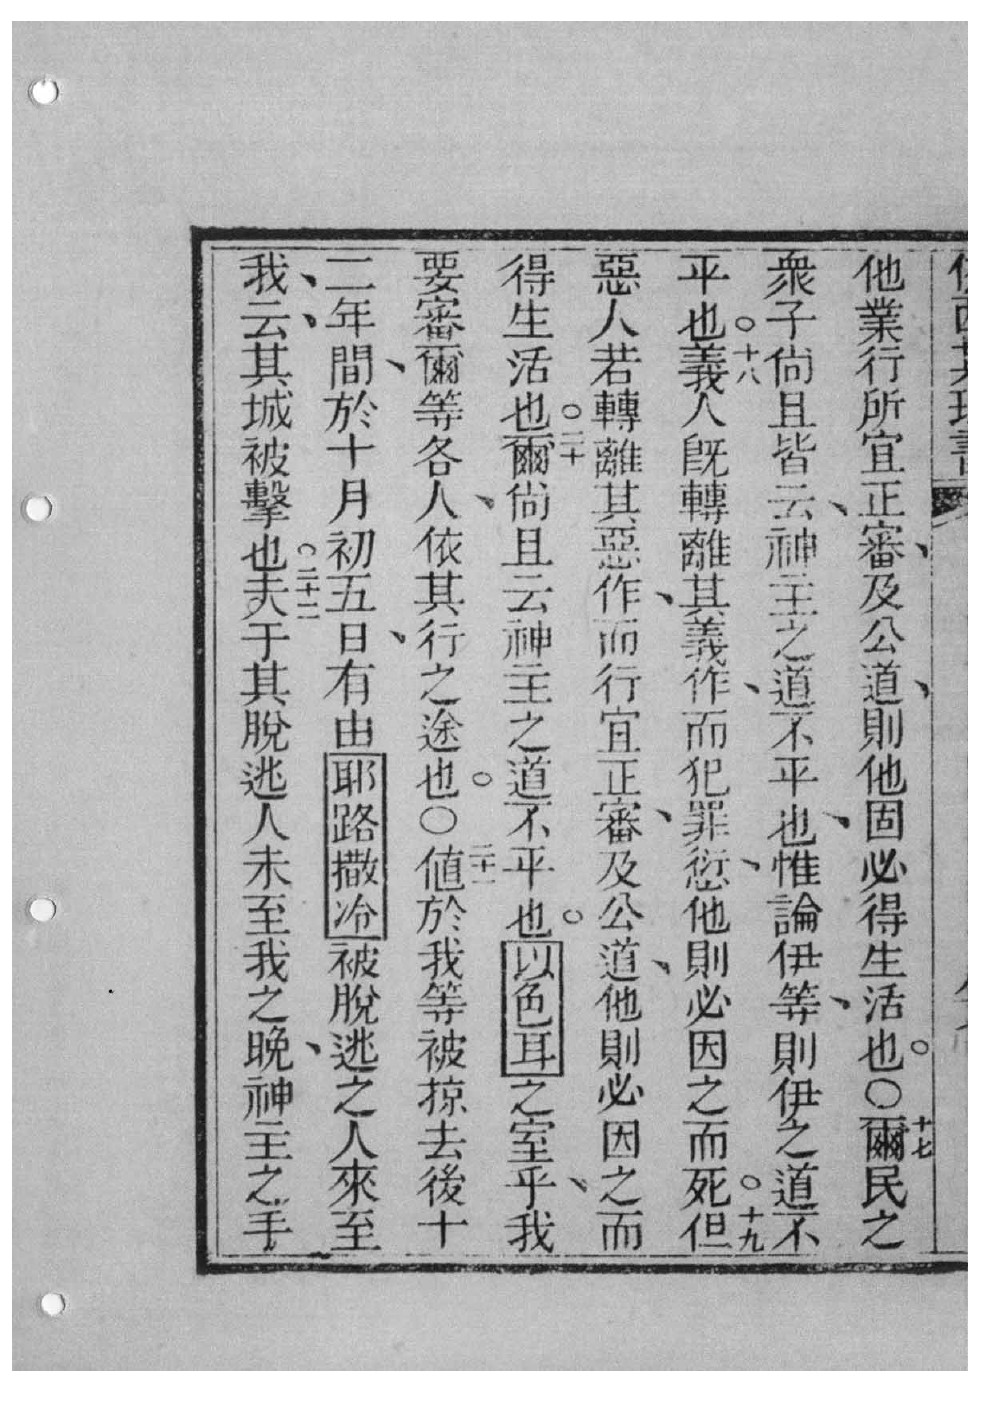 他業行所宜正審、及公道、則他固必得生活也。○十七爾民之
衆子尙且皆云、神主之道不平也、惟論伊等、則伊之道不
平也。十八義人旣轉離其義作、而犯罪愆、他則必因之而死。十九但
惡人若轉離其惡作、而行宜正審、及公道、他則必因之而
得生活也。二十爾尙且云神主之道不平也。以色耳之室乎、我
要審爾等各人、依其行之途也。○二十一値於我等被掠去後十
二年間、於十月初五日、有由耶路撒冷被脫逃之人來至
我、云、其城被擊也。二十二夫于其脫逃人未至我之晚、神主之手